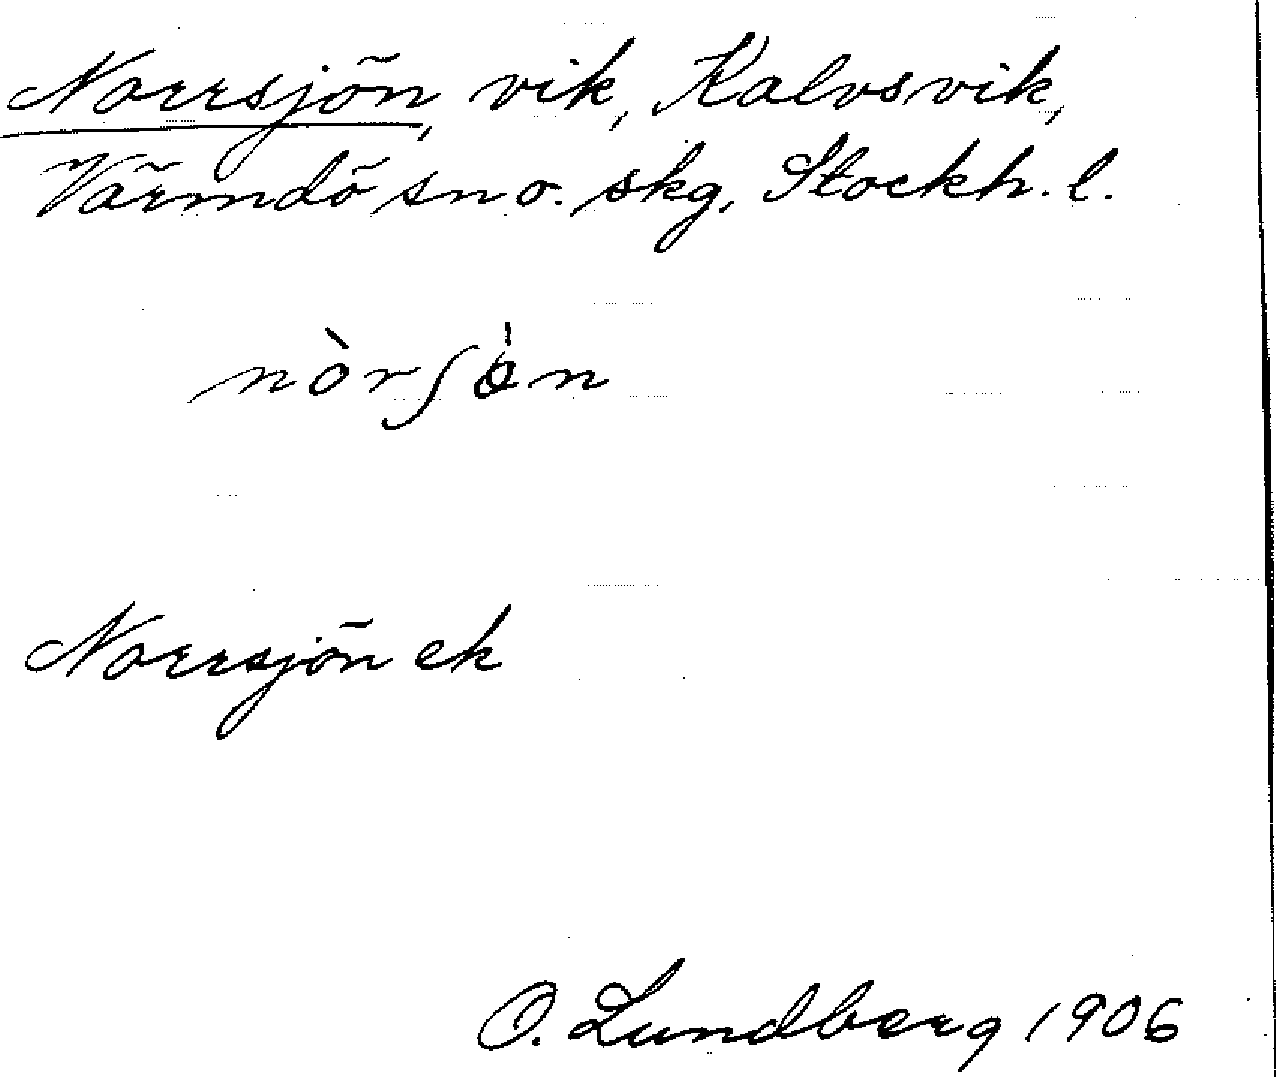 Norrsjön, vik, Kalvsvik,
Värmdö sn o. skg, Stockh. l.
nòrʃö̀n
Norrsjön ek
O. Lundberg 1906